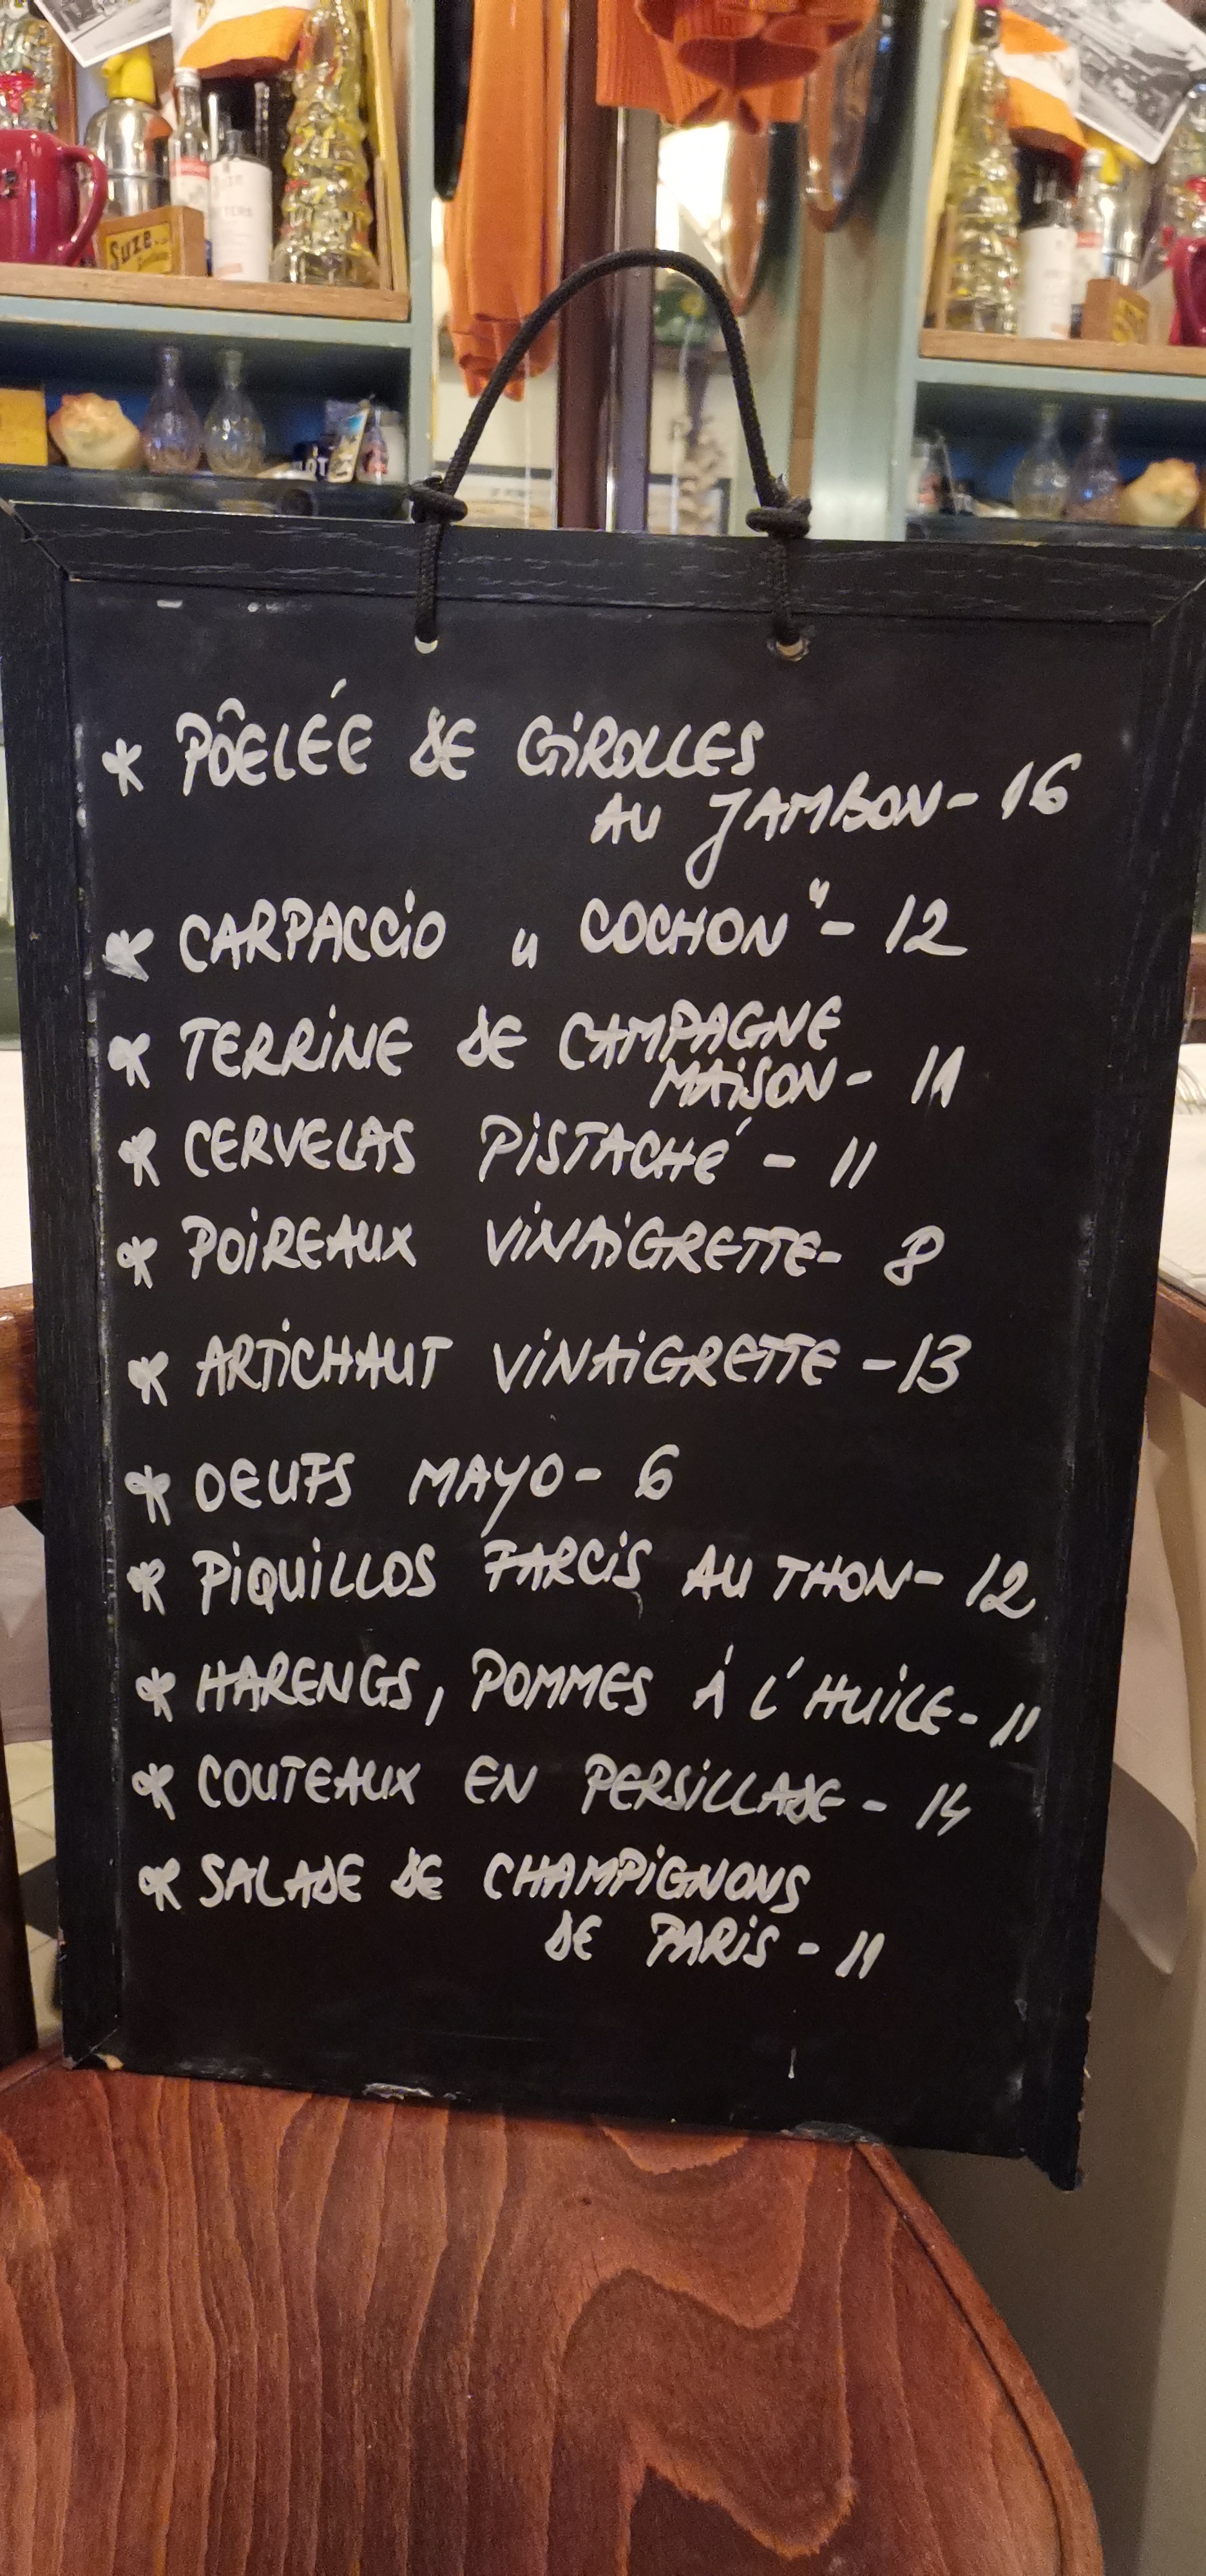 Suze
* PÔELÉE DE GIROLLES
AU JAMBON - 16
* CARPACCIO " COCHON " - 12
* TERRINE DE CAMPAGNE
MAISON - 11
* CERVELAS PISTACHÉ - 11
* POIREAUX VINAIGRETTE - 8
* ARTICHAUT VINAIGRETTE - 13
* OEUFS MAYO - 6
* PIQUILLOS FARCIS AU THON - 12
* HARENGS, POMMES À L'HUILE - 11
* COUTEAUX EN PERSILLADE - 14
* SALADE DE CHAMPIGNONS
DE PARIS - 11